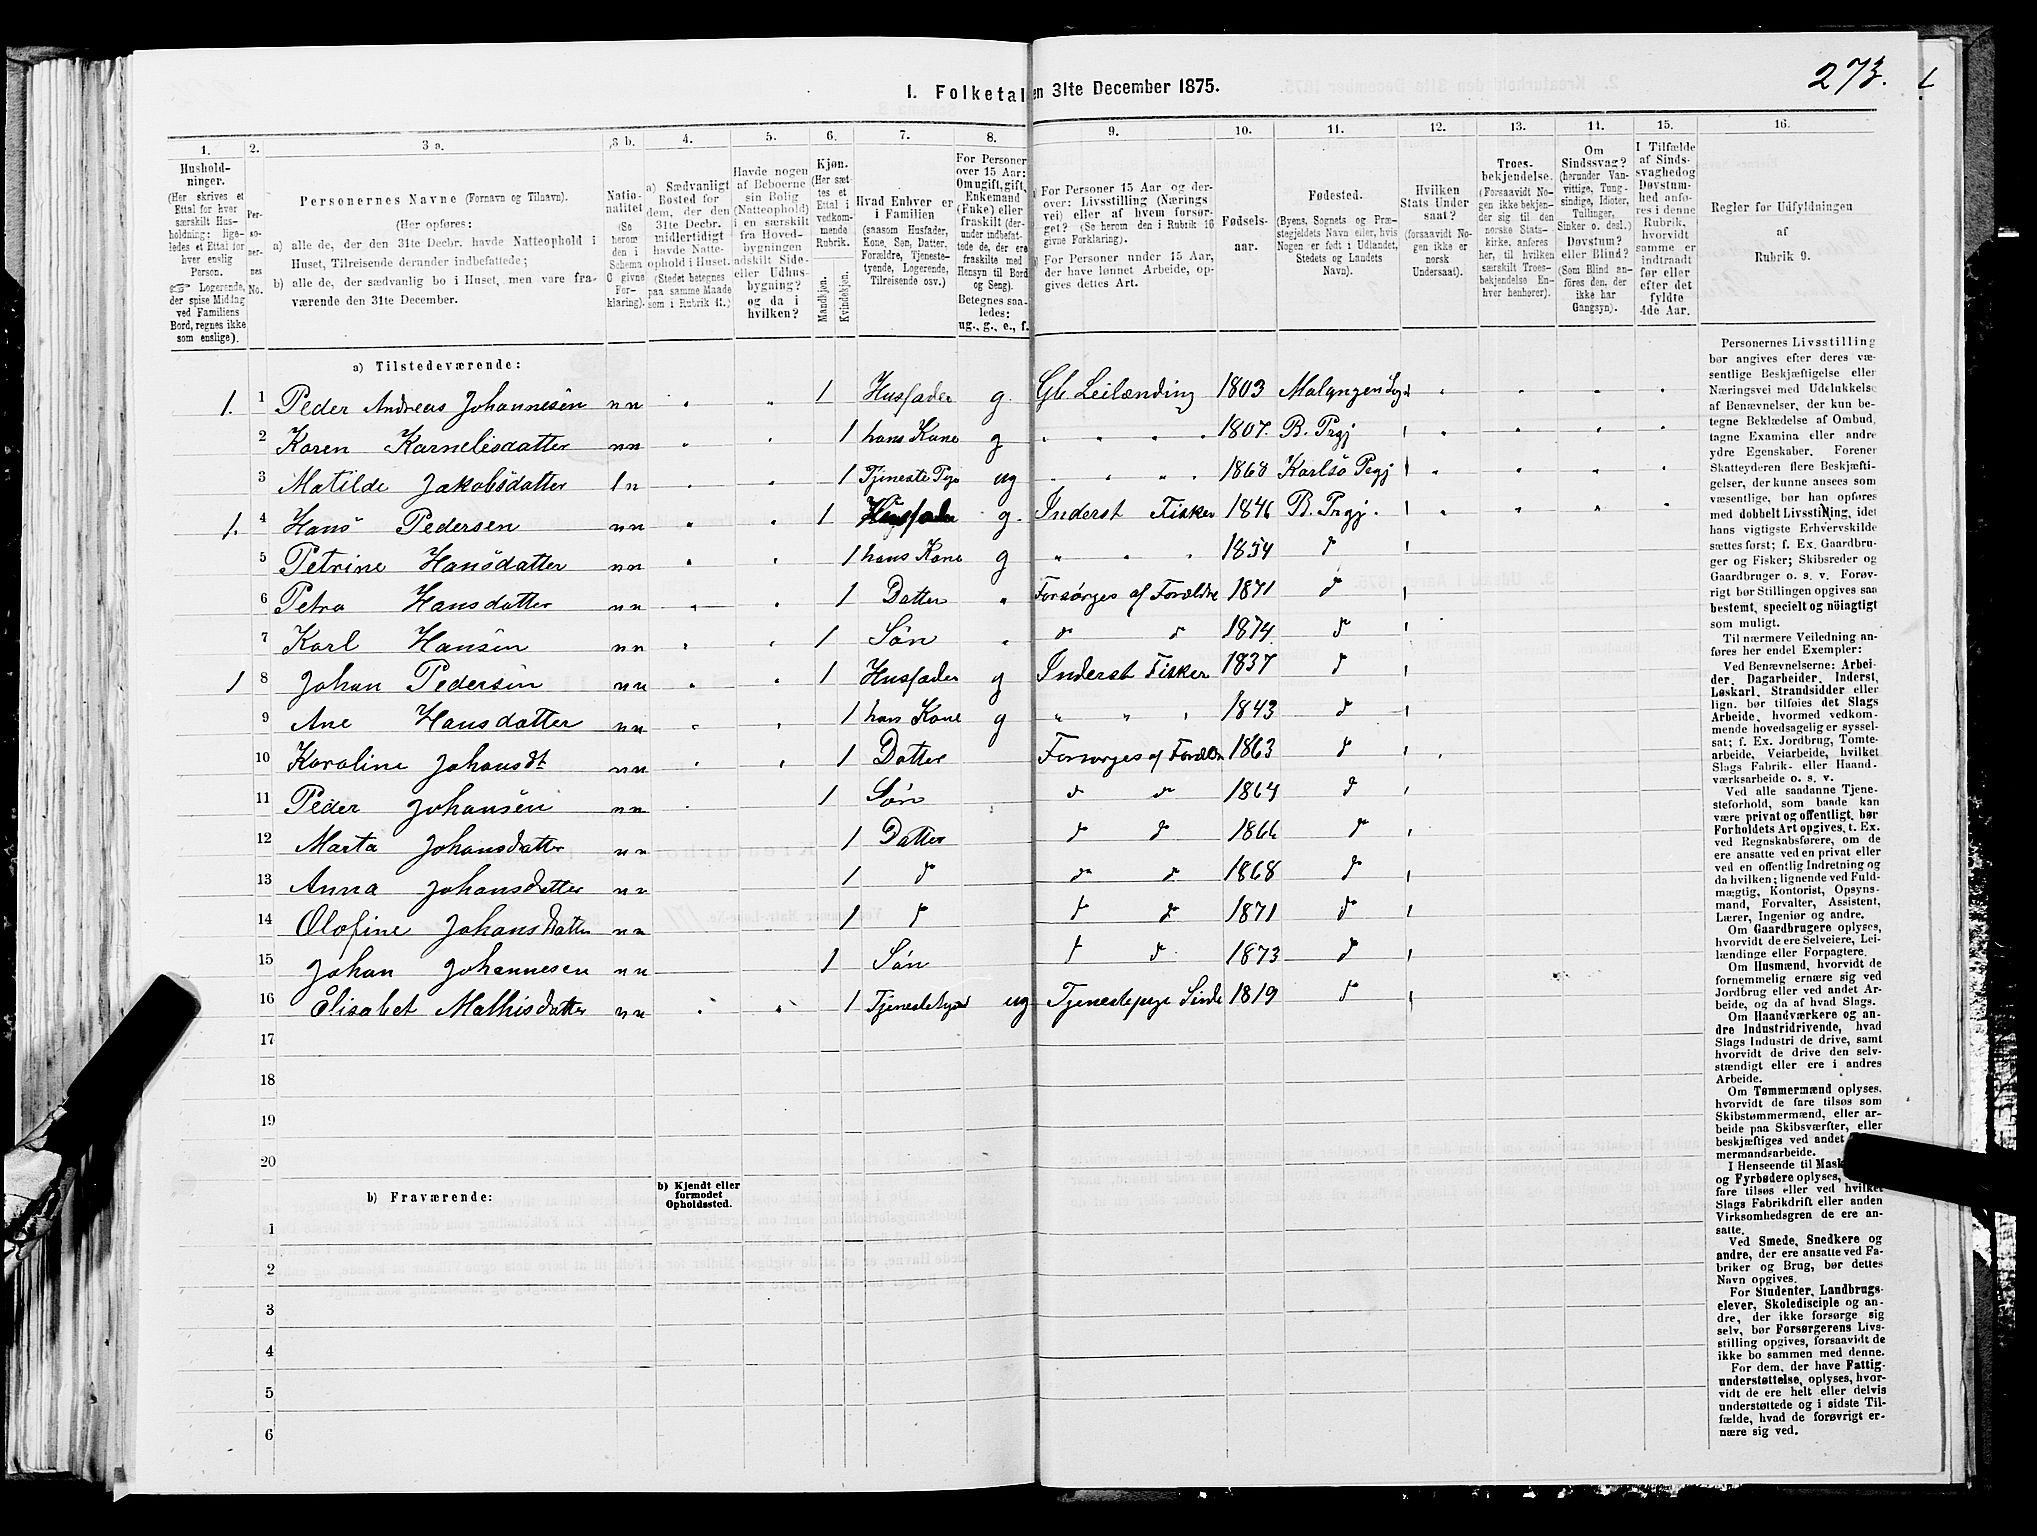 273.
1. Folketal en 31te December 1875.
1. 2. 3 a. 3 b. 4. 5. 6. 7. 8. 9. 10. 11. 12. 13. 11. 15. 16.
Hushold-
ninger.
(Her skrives et
Ettal for hver
særskilt Hus-
holdning; lige-
ledes et Ettal for
hver enslig
Person.
Logerende,
der spise Middag
ved Familiens
Bord, regnes ikke
som enslige).
Per-
so-
ner-
nes
No.
Personernes Navne (Fornavn og Tilnavn).
(Her opføres:
a) alle de, der den 31te Decbr. havde Natteophold i
Huset, Tilreisende derunder indbefattede;
b) alle de, der sædvanlig bo i Huset, men vare fra-
værende den 31te December.
Natio-
nalitet
(Se
herom
den i
Schema
G givne
For-
klaring).
a) Sædvanligt
Bosted for
dem, der den
31te Decbr.
midlertidigt
havde Natte-
ophold i Huset.
(Stedet betegnes
paa samme Maade
som i Rubrik 11.)
Havde nogen
af Beboerne
sin Bolig
(Natteophold)
i en særskilt
fra Hoved-
bygningen
adskilt Side-
eller Udhus-
bygning?
og da i
hvilken?
Kjøn.
(Her sæt-
tes et
Ettal i
vedkom-
mende
Rubrik.
Mandkjøn.
Kvindekjøn.
Hvad Enhver er
i Familien
(saasom Husfader,
Kone, Søn, Datter,
Forældre, Tjeneste-
tyende, Logerende,
Tilreisende osv.)
For Personer
over 15 Aar:
Om ugift, gift,
Enkemand
(Enke) eller
fraskilt (der-
under indbefat-
tede de, der ere
fraskilte med
Hensyn til Bord
og Seng).
Betegnes saa-
ledes:
ug., g., e., f.
For Personer 15 Aar og der-
over: Livsstilling (Nærings-
vei) eller af hvem forsør-
get? (Se herom den i Rubrik 16
givne Forklaring).
For Personer under 15 Aar,
der have lønnet Arbeide, op-
gives dettes Art.
Fødsels-
aar.
Fødested.
(Byens, Sognets og Præ-
stegjeldets Navn eller, hvis
Nogen er født i Udlandet,
Stedets og Landets
Navn).
Hvilken
Stats Under
saat?
(forsaavidt No-
gen ikke er
norsk
Undersaat).
Troes-
bekjendelse.
(Forsaavidt No-
gen ikke bekjen-
der sig til den
norske Stats-
kirke, anføres
her, til hvilken
særskilt Troes-
bekjendelse En-
hver henhører).
Om
Sindssvag?
(herunder Van-
vittige, Tung-
sindige, Idioter,
Tullinger,
Sinker o. desl.)
Døvstum?
eller Blind?
(Som Blind an-
føres den, der
ikke har
Gangsyn).
I Tilfælde
af Sinds-
svaghed og
Døvstum-
hed anfø-
res i denne
Rubrik,
hvorvidt
samme er
indtraadt
før eller
efter det
fyldte
4de Aar.
Regler for Udfyldningen
af
Rubrik 9.
a) Tilstedeværende:
1. 1 Peder Andreas Johannesen nn 1 Husfader g. Gb Leilænding 1803 Malangen
2 Karen Kornelisdatter nn 1 hans Kone g 1807. B. Prgj
3 Matilde Jakobsdatter ln 1 Tjeneste ug 1868 Karlsø Prgj
1. 4 Hans Pedersen nn 1 Husfader g. Inderst Fisker 1846 B. Prgj.
5 Petrine Hansdatter nn 1 hans Kone g 1854 d
6 Petra Hansdatter nn 1 Datter Forsørges af Forældre 1871 d
7 Karl Hansen nn 1 Søn d d 1874. d
1 8 Johan Pedersen nn 1 Husfader g Inderst Fisker 1837 d
9 Ane Hansdatter nn 1 hans Kone g 1843 d
10 Karoline Johansdt nn 1 Datter Forsørges af 1863 d
11 Peder Johansen nn 1 Søn d d 1864 d
12 Marta Johansdatter nn 1 Datter d d 1866 d
13 Anna Johansdatter nn 1 d d d 1868 d
14 Olofine Johansdatter nn 1 d d d 1871 d
15 Johan Johannesen nn 1 Søn d d 1873 d
16 Elisabet Mathisdatter nn 1 ug 1819 d
17
18
19
20
b) Fraværende:
b) Kjendt eller
formodet
Opholdssted.
1
2
3
4
5
6
Personernes Livsstilling
bør angives efter deres væ-
sentlige Beskjæftigelse eller
Næringsvei med Udelukkelse
af Benævnelser, der kun be-
tegne Beklædelse af Ombud,
tagne Examina eller andre
ydre Egenskaber. Forener
Skatteyderen flere Beskjæfti-
gelser, der kunne ansees som
væsentlige, bør han opføres
med dobbelt Livsstilling, idet
hans vigtigste Erhvervskilde
sættes først; f. Ex. Gaardbru-
ger og Fisker; Skibsreder og
Gaardbruger o. s. v. Forøv-
rigt bør Stillingen opgives saa
bestemt, specielt og nöiagtigt
som muligt.
Til nærmere Veiledning an-
føres her endel Exempler:
Ved Benævnelserne: Arbei-
der, Dagarbeider, Inderst,
Løskarl, Strandsidder eller
lign. bør tilføies det Slags
Arbeide, hvormed vedkom-
mende hovedsagelig er syssel-
sat; f. Ex. Jordbrug, Tomte-
arbeide, Veiarbeide, hvilket
Slags Fabrik- eller Haand-
værksarbeide o. s. v.
Ved alle saadanne Tjene-
steforhold, som baade kan
være privat og offentligt, bør
Forholdets Art opgives, t. Ex.
ved Regnskabsførere, om de
ere ansatte ved en privat eller
ved en offentlig Indretning og
da hvilken; lignende ved Fuld-
mægtig, Kontorist, Opsyns-
mand, Forvalter, Assistent,
Lærer, Ingeniør og andre.
Om Gaardbrugere oplyses,
hvorvidt de ere Selveiere, Lei-
lændinge eller Forpagtere.
Om Husmænd, hvorvidt de
fornemmelig ernære sig ved
Jordbrug eller ved andet Ar-
beide, og da af hvad Slags.
Om Haandværkere og an-
dre Industridrivende, hvad
Slags Industri de drive, samt
hvorvidt de drive den selv-
stændigt eller ere i andres
Arbeide.
Om Tømmermænd oplyses,
hvorvidt de fare tilsøs som
Skibstømmermænd, eller ar-
beide paa Skibsværfter, eller
beskjæftiges ved andet
mermandsarbeide.
I Henseende til
og Fyrbødere oplyses,
fare tilsøs eller ved hvilket
Slags Fabrikdrift eller anden
Virksomhedsgren de ere an-
satte.
Ved Smede, Snedkere og
andre, der ere ansatte ved Fa-
briker og Brug, bør dettes
Navn opgives.
For Studenter, Landbrugs-
elever, Skoledisciple og an-
dre, der ikke forsørge sig
selv, bør Forsørgerens Livs-
stilling opgives, forsaavidt de
ikke bo sammen med denne.
For dem, der have Fattig-
understøttelse, oplyses, hvor-
vidt de ere helt eller delvis
understøttede og i sidste Til-
fælde, hvad de forøvrigt er-
nære sig ved.